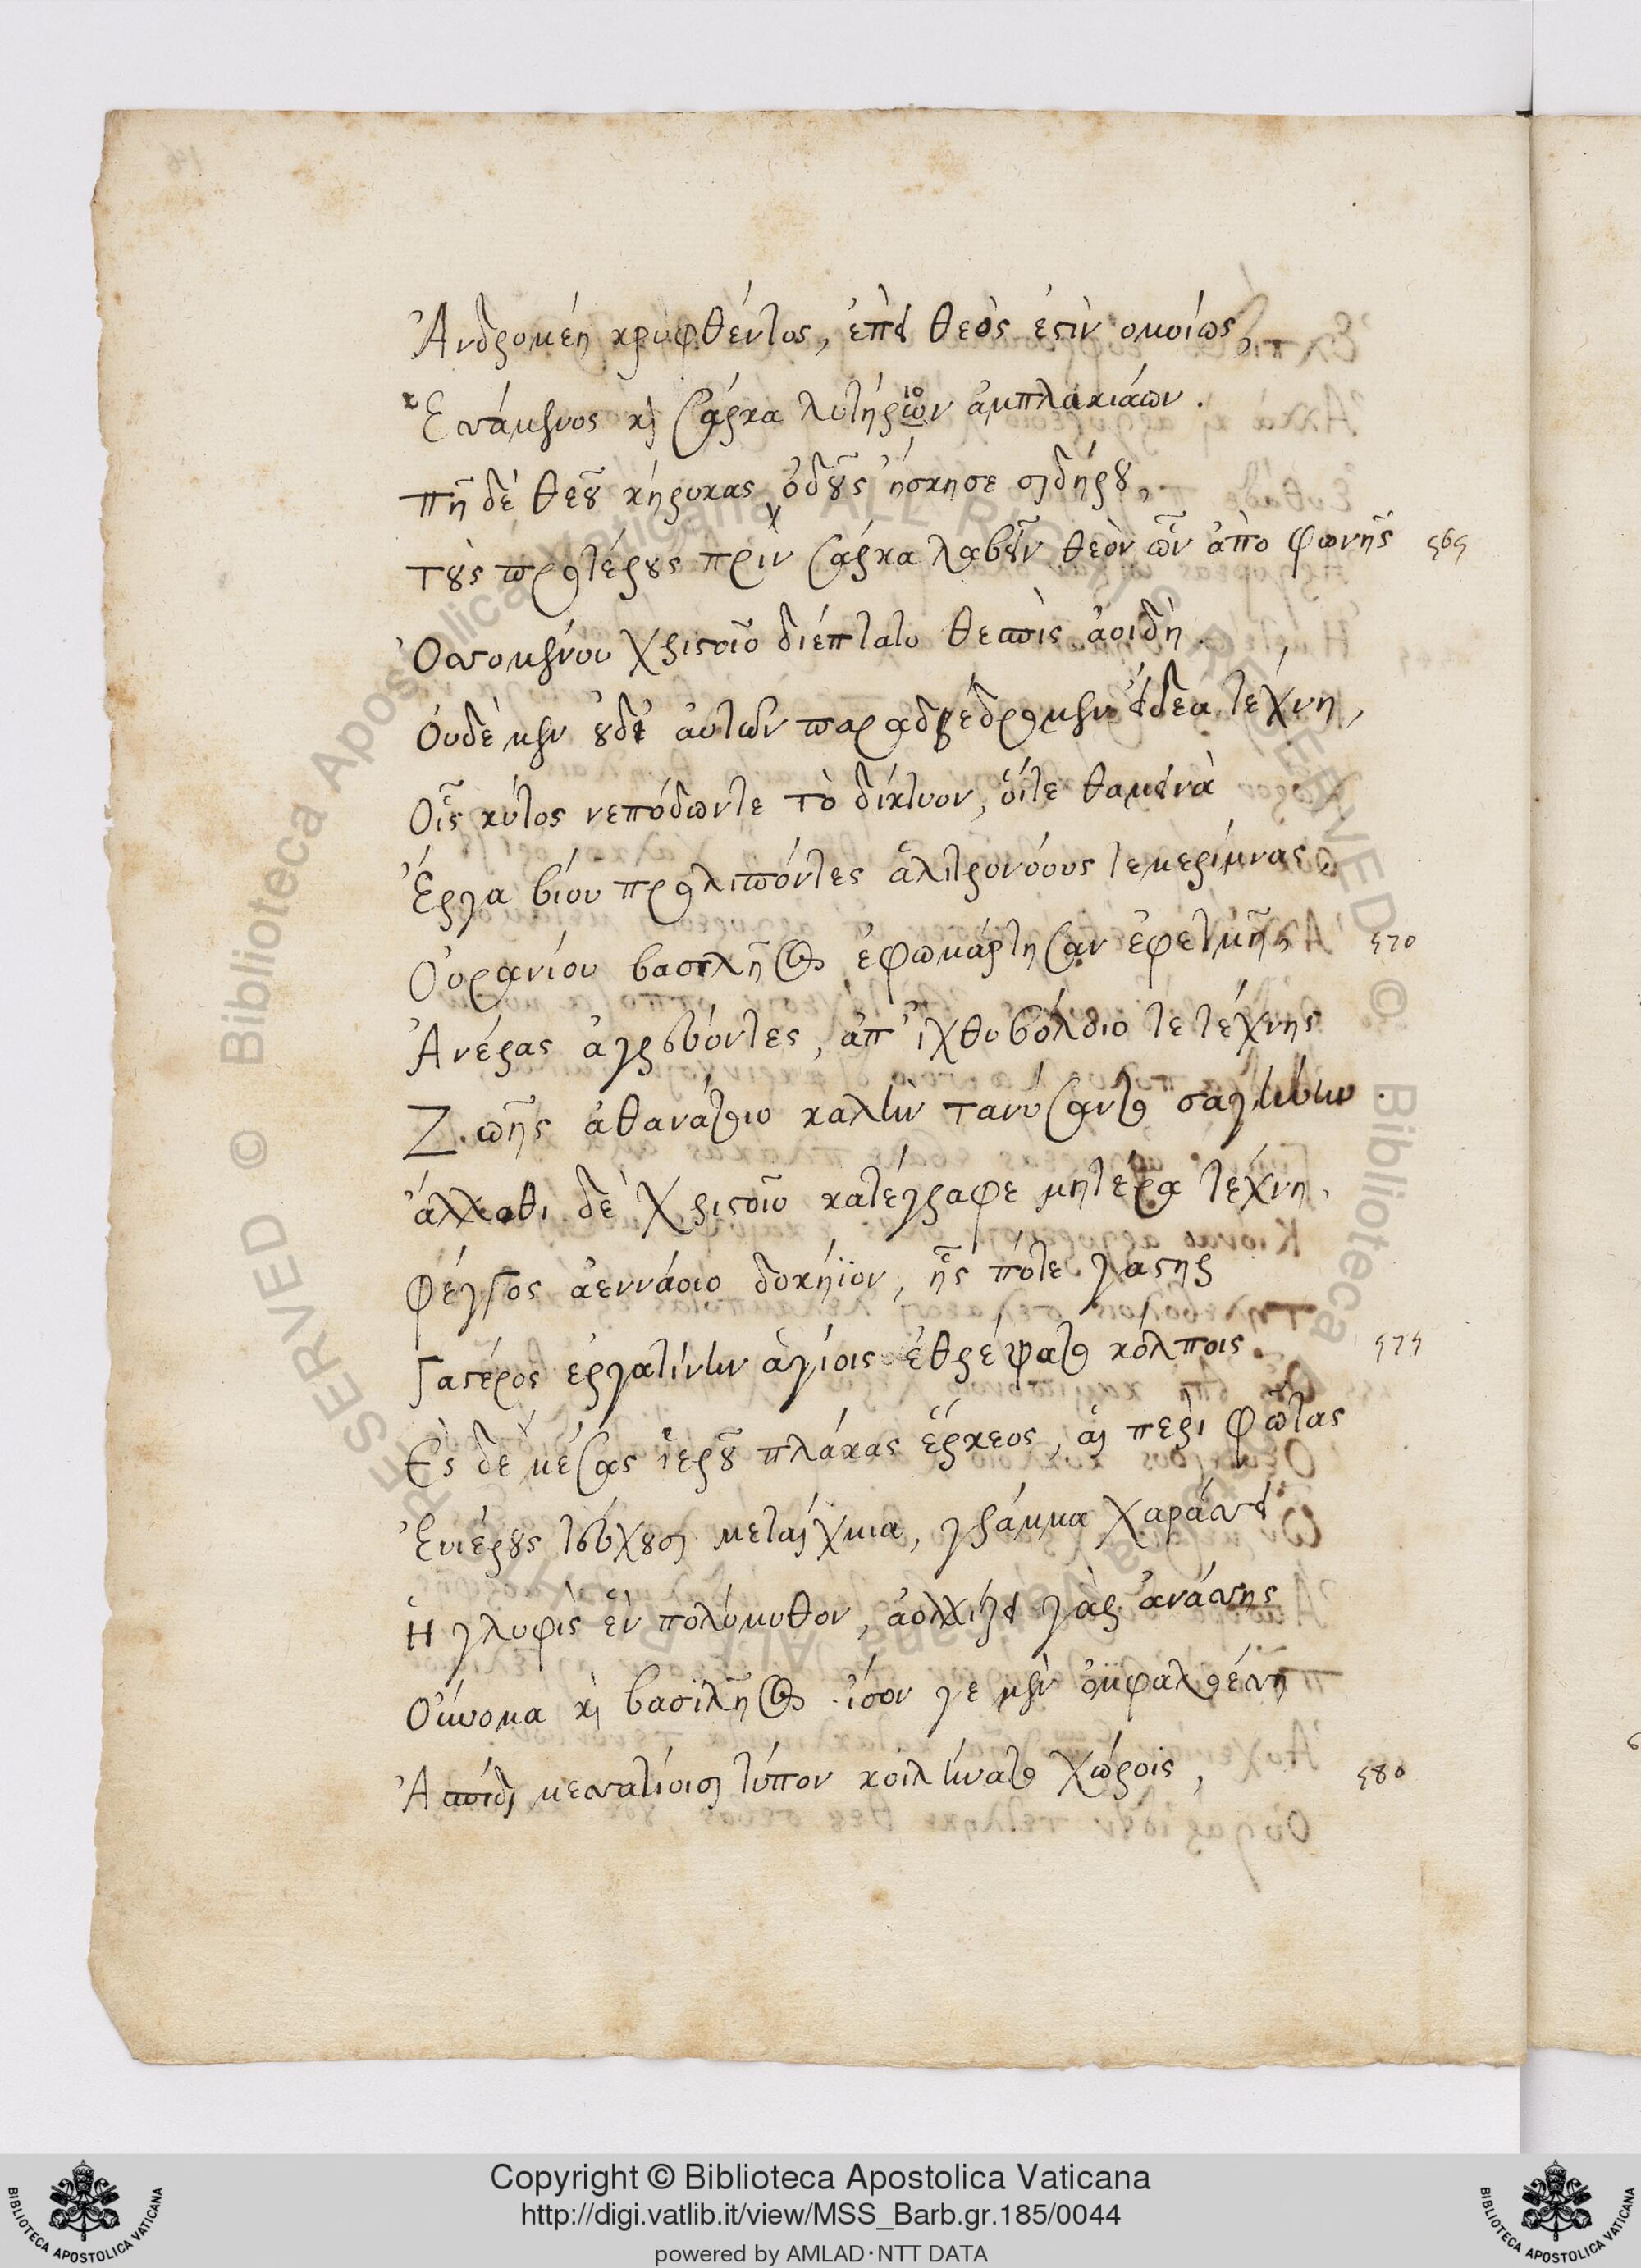 Ἀνδρομέη κρυφθέντος, ἐπεὶ θεὸς ἐστὶν ὁμοίως,
Ἑσσάμενος καὶ σάρκα λυτήριον ἀμπλακιάων.
πῆ δὲ θεοῦ κήρυκας ὁδοὺς ἤσκησε σιδήρου,
τοὺς προτέρους πρὶν σάρκα λαβεῖν θεὸν ὧν ἀπὸ φωνῆς 565
Ὀσσομένου χριστοῖο διέπτατο θέσπις ἀοιδή.
Οὐδὲ μὲν οὐδὲ αὐτῶν παραδέδρομεν εἴδεα τέχνη,
Οἷς κύτος νεπόδωντε τὸ δίκτυον, οἵτε θαμεινὰ
Ἔργα βίου προλιπόντες ἀλιτρονόους τε μερίμνας,
Οὐρανίου βασιλῆος ἐφωμάρτησαν ἐφετμῆς, 570
Ἀνέρας ἀγρεύοντες, ἀπ' ἰχθυβόλοιο τε τέχνης
Ζωῆς ἀθανάτοιο καλὴν τανύσαντο σαγήνην.
ἄλλοθι δὲ χριστοῖο κατέγραφε μητέρα τέχνη,
φέγγος ἀεννάοιο δοχήϊον, ἧς πότε γαστὴρ
Γαστέρος ἐργατίνην ἁγίοις ἐθρέψατο κόλποις. 575
Ἐς δὲ μέσας ἱεροῦ πλάκας ἕρκεος, αἳ περὶ φῶτας
Εὐιέρους τεύχουσι μεταίχμια, γράμμα χαράσσει
Ἡ γλυφὶς ἓν πολύμυθον, ἀολλίζει γὰρ ἀνάσσης
Οὔνομα καὶ βασιλῆος ἴσον γε μὲν ὀμφαλοέσση
Ἀσπίδι μεσσατίοισι τύπον κοιλήνατο χώροις, 580
Copyright © Biblioteca Apostolica Vaticana
http://digi.vatlib.it/view/MSS_Barb.gr.185/0044
powered by AMLAD·NTT DATA